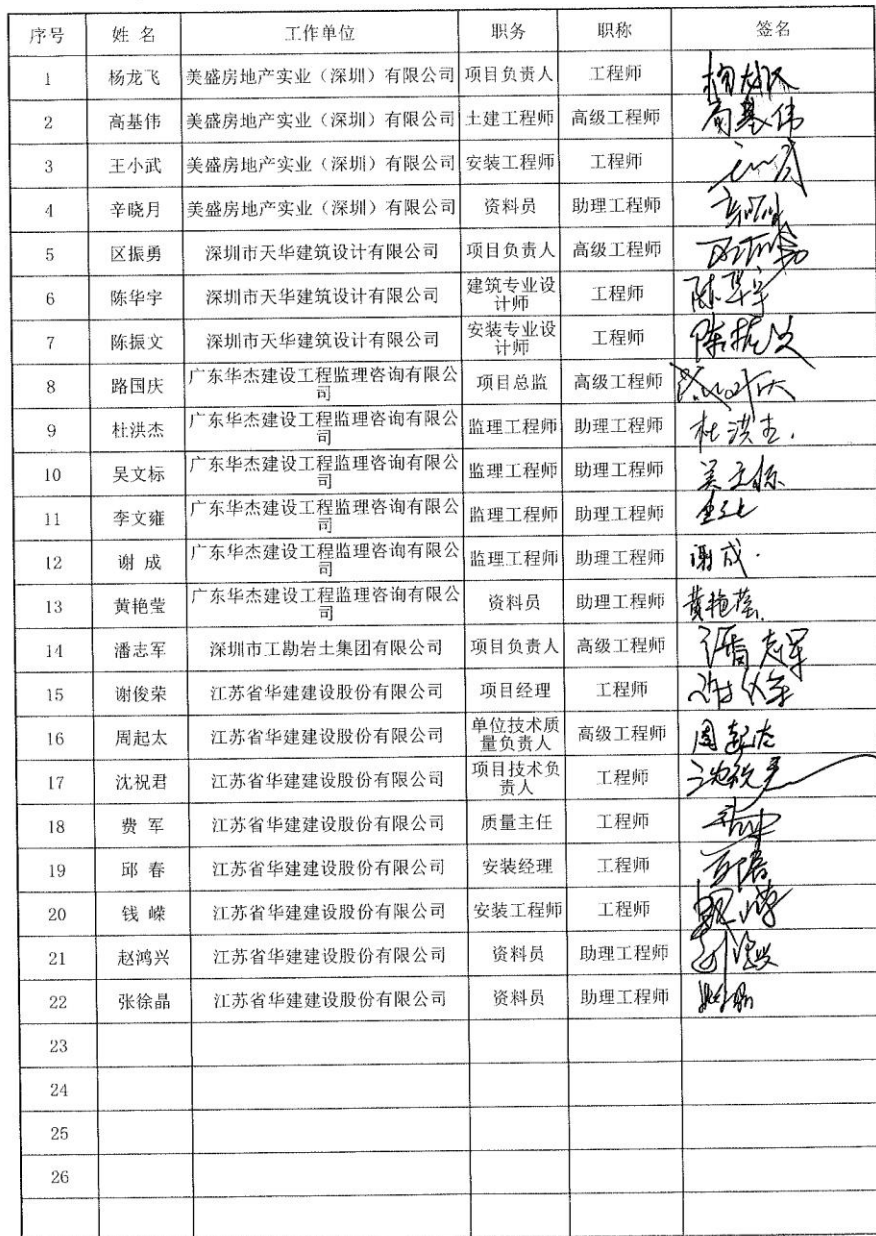 序号 姓 名 工作单位 职务 职称 签名
1 杨龙飞 美盛房地产实业（深圳）有限公司 项目负责人 工程师
2 高基伟 美盛房地产实业（深圳）有限公司 土建工程师 高级工程师 高基伟
3 王小武 美盛房地产实业（深圳）有限公司 安装工程师 工程师
4 辛晓月 美盛房地产实业（深圳）有限公司 资料员 助理工程师
5 区振勇 深圳市天华建筑设计有限公司 项目负责人 高级工程师
6 陈华宇 深圳市天华建筑设计有限公司 建筑专业设计师 工程师 陈华宇
7 陈振文 深圳市天华建筑设计有限公司 安装专业设计师 工程师 陈振文
8 路国庆 广东华杰建设工程监理咨询有限公司 项目总监 高级工程师
9 杜洪杰 广东华杰建设工程监理咨询有限公司 监理工程师 助理工程师 杜洪杰
10 吴文标 广东华杰建设工程监理咨询有限公司 监理工程师 助理工程师
11 李文雍 广东华杰建设工程监理咨询有限公司 监理工程师 助理工程师
12 谢 成 广东华杰建设工程监理咨询有限公司 监理工程师 助理工程师 谢成
13 黄艳莹 广东华杰建设工程监理咨询有限公司 资料员 助理工程师 黄艳莹
14 潘志军 深圳市工勘岩土集团有限公司 项目负责人 高级工程师 潘志军
15 谢俊荣 江苏省华建建设股份有限公司 项目经理 工程师
16 周起太 江苏省华建建设股份有限公司 单位技术质量负责人 高级工程师 周起太
17 沈祝君 江苏省华建建设股份有限公司 项目技术负责人 工程师 沈祝君
18 费 军 江苏省华建建设股份有限公司 质量主任 工程师
19 邱 春 江苏省华建建设股份有限公司 安装经理 工程师
20 钱 嵘 江苏省华建建设股份有限公司 安装工程师 工程师
21 赵鸿兴 江苏省华建建设股份有限公司 资料员 助理工程师
22 张徐晶 江苏省华建建设股份有限公司 资料员 助理工程师
23
24
25
26